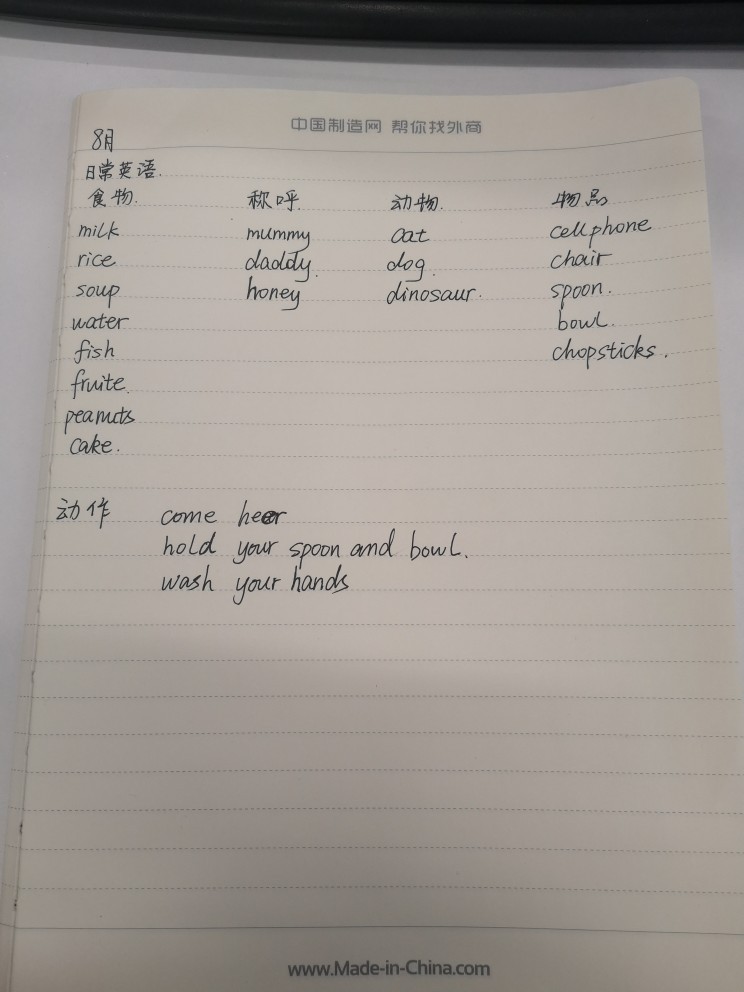 中国制造网 帮你找外商
8月
日常英语.
食物. 称呼. 动物. 物品
milk mummy cat cellphone
rice daddy. dog. chair
soup honey dinosaur. spoon.
water bowl.
fish chopsticks.
fruite.
peanuts
cake.
动作 come heer
hold your spoon and bowl.
wash your hands
www.Made-in-China.com